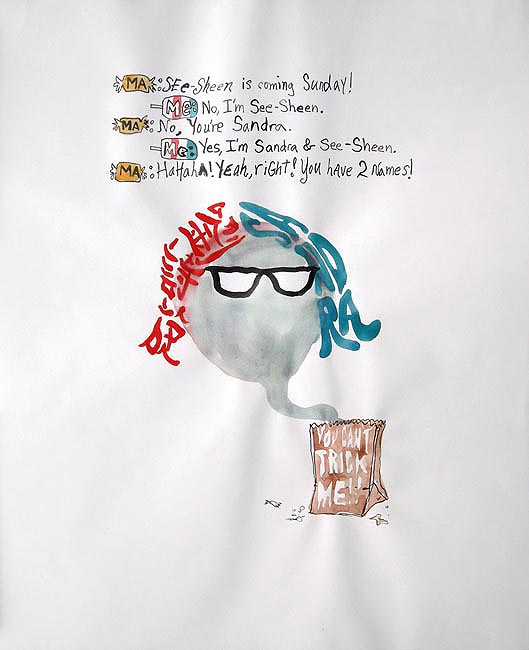 MA: SEE-Sheen is coming Sunday!
Me: No, I'm See-Sheen.
MA: No, You're Sandra.
Me: Yes, I'm Sandra & See-Sheen.
MA: HaHahA! YEah, right! You have 2 Names!
SANDRA
YOU CAN'T
TRICK
ME!!